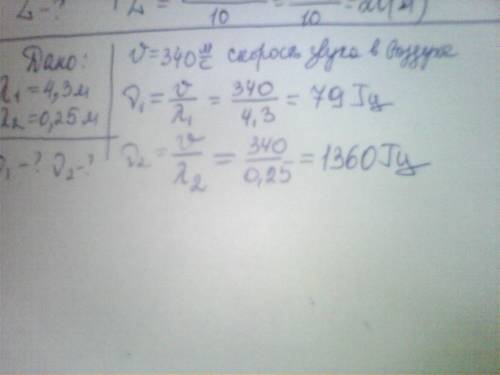 10 10
Дано:
λ₁ = 4,3 м
λ₂ = 0,25 м
ν₁ - ? ν₂ - ?
v = 340 м/с скорость звука в воздухе
ν₁ = v/λ₁ = 340/4,3 = 79 Гц
ν₂ = v/λ₂ = 340/0,25 = 1360 Гц